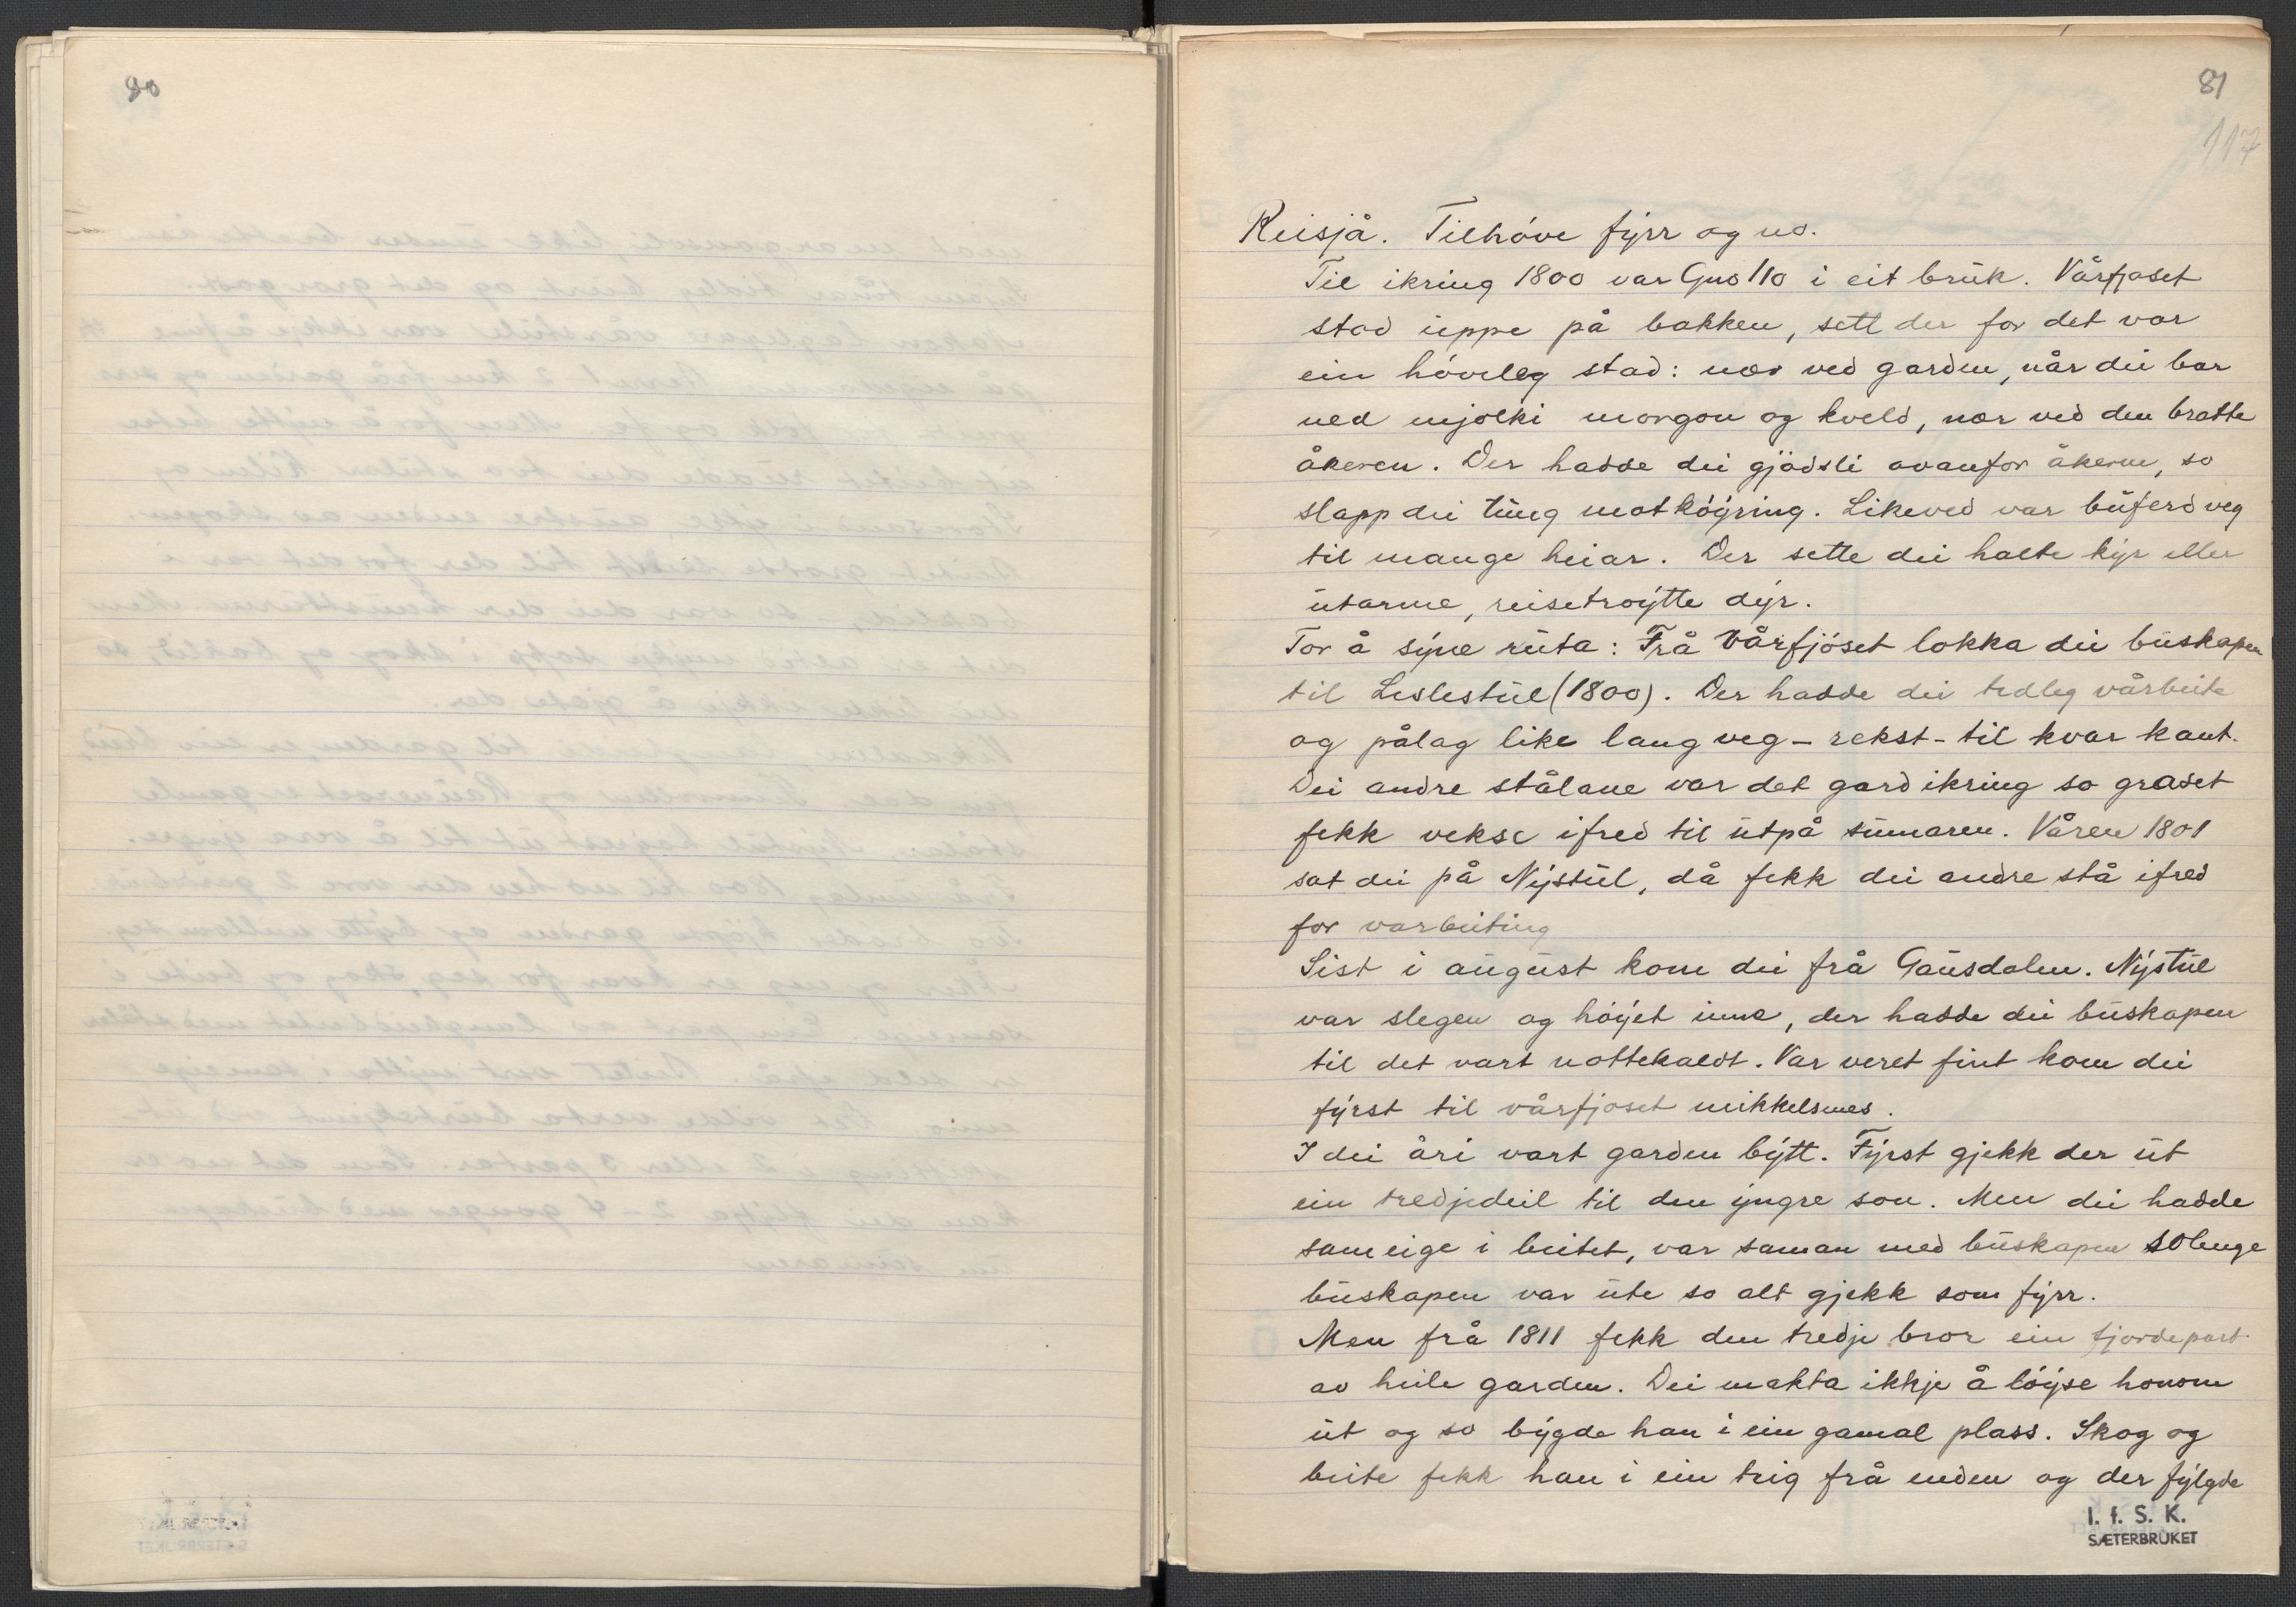 80
81
117
Reisjå. Tilhøve fyrr og no.
Til ikring 1800 var Gno 110 i eit bruk. Vårfjøset
stod uppe på bakken, sett der for det var
ein høveleg stad: nær ved garden, når dei bar
ned mjølki morgon og kveld, nær ved den bratte
åkeren. Der hadde dei gjødsli ovanfor åkeren, so
slapp dei tung motkøyring. Likeved var buferdveg
til mange heiar. Der sette dei halte kyr eller
utarme, reisetrøytte dyr.
For å syne ruta: Frå Vårfjøset lokka dei buskapen
til Leslestul (1800). Der hadde dei tedleg vårbeite
og pålag like lang veg - rekst - til kvar kant.
Dei andre stølane var det gard ikring so graset
fekk vekse ifred til utpå sumaren. Våren 1801
sat dei på Nystul, då fekk dei andre stå ifred
for vårbeiting
Sist i august kom dei frå Gausdalen. Nystul
var slegen og høyet inne, der hadde dei buskapen
til det vart nottekaldt. Var veret fint kom dei
fyrst til vårfjøset mikkelsmes.
I dei åri vart garden bytt. Fyrst gjekk der ut
ein tredjedeil til den yngre son. Men dei hadde
sameige i beitet, var saman med buskapen solenge
buskapen var ute so alt gjekk som fyrr.
Men frå 1811 fekk den tredje bror ein fjordepart
av heile garden. Dei makta ikkje å løyse honom
ut og so bygde han i ein gamal plass. Skog og
beite fekk han i ein teig frå enden og der fylgde
I. f. S. K.
SÆTERBRUKET